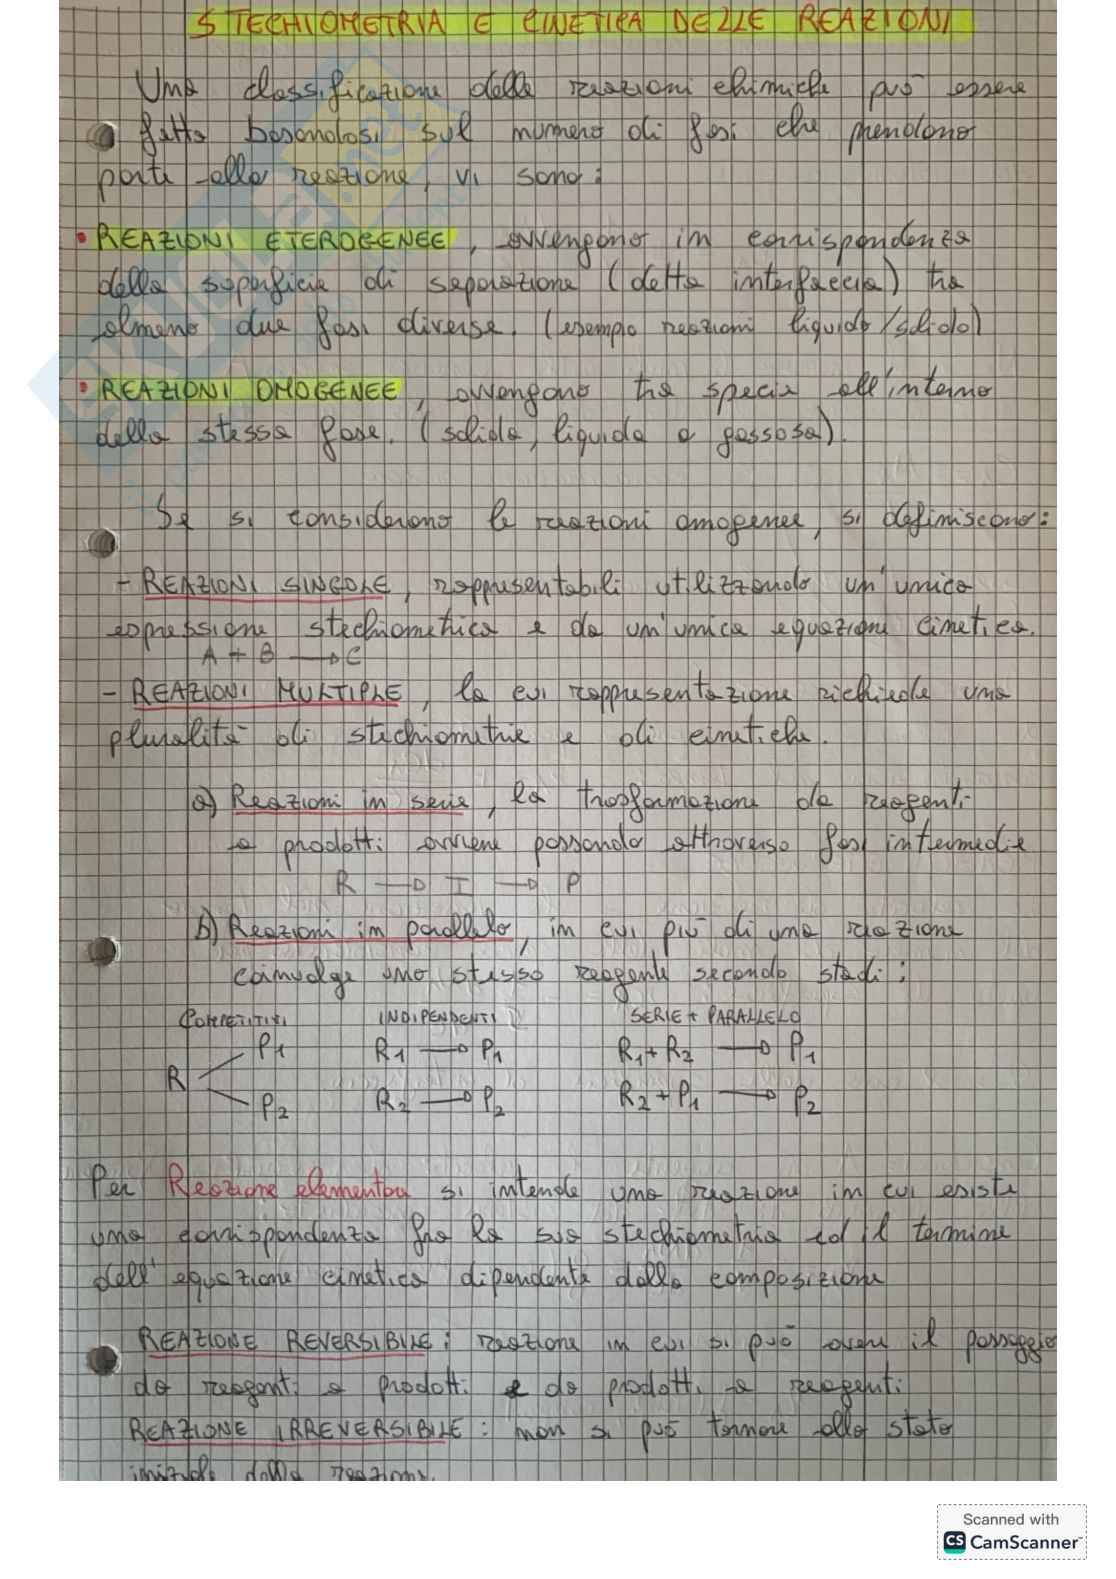 STECHIOMETRIA E CINETICA DELLE REAZIONI
Una classificazione delle reazioni chimiche può essere
fatta basandosi sul numero di fasi che prendono
parte alla reazione, vi sono:
• REAZIONI ETEROGENEE, avvengono in corrispondenza
della superficie di separazione (detta interfaccia) tra
almeno due fasi diverse. (esempio reazioni liquido/solido)
• REAZIONI OMOGENEE, avvengono tra specie all'interno
della stessa fase. (solida, liquida o gassosa).
Se si considerano le reazioni omogenee, si definiscono:
- REAZIONI SINGOLE, rappresentabili utilizzando un'unica
espressione stechiometrica e da un'unica equazione cinetica.
A + B → C
- REAZIONI MULTIPLE, la cui rappresentazione richiede una
pluralità di stechiometrie e di cinetiche.
a) Reazioni in serie, la trasformazione da reagenti
a prodotti avviene passando attraverso fasi intermedie
R → I → P
b) Reazioni in parallelo, in cui più di una reazione
coinvolge uno stesso reagente secondo stadi:
COMPETITIVI INDIPENDENTI SERIE + PARALLELO
P1 R1 → P1 R1 + R2 → P1
R
P2 R2 → P2 R2 + P1 → P2
Per Reazione elementare si intende una reazione in cui esiste
una corrispondenza fra la sua stechiometria ed il termine
dell'equazione cinetica dipendente dalla composizione
REAZIONE REVERSIBILE: reazione in cui si può avere il passaggio
da reagenti a prodotti e da prodotti a reagenti
REAZIONE IRREVERSIBILE: non si può tornare allo stato
iniziale della reazione.
Scanned with
CS CamScanner